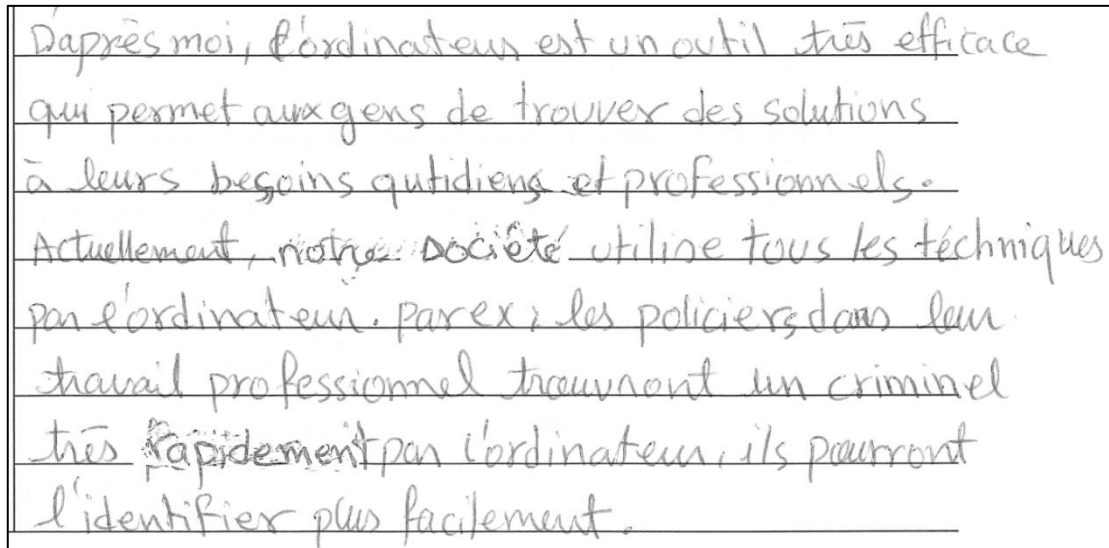 D'après moi, l'ordinateur est un outil très efficace
qui permet aux gens de trouver des solutions
à leurs besoins qutidiens et professionnels.
Actuellement, notre société utilise tous les téchniques
par l'ordinateur. par ex; les policiers dans leur
travail professionnel trouvront un criminel
très rapidement par l'ordinateur, ils pourront
l'identifier plus facilement.